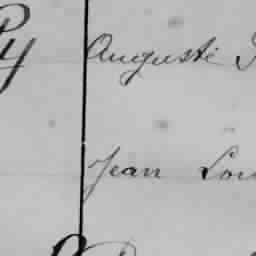 Auguste
Jean Lou